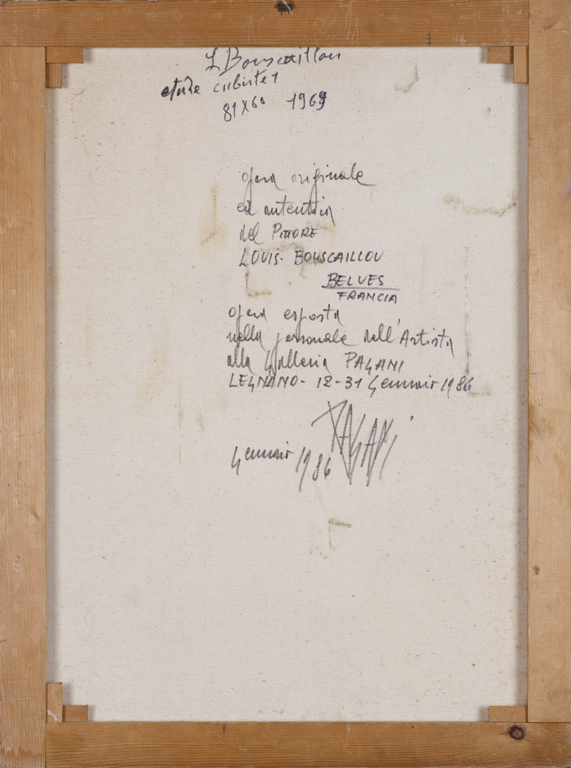 L Bouscaillou
etude cubiste 1
81X60 1969
opera originale
ed autentica
del PITTORE
LOUIS - BOUSCAILLOU
BELVES
FRANCIA
opera esposta
nella personale dell'Artista
alla Galleria PAGANI
LEGNANO - 12-31 Gennaio 1986
PAGANI
Gennaio 1986